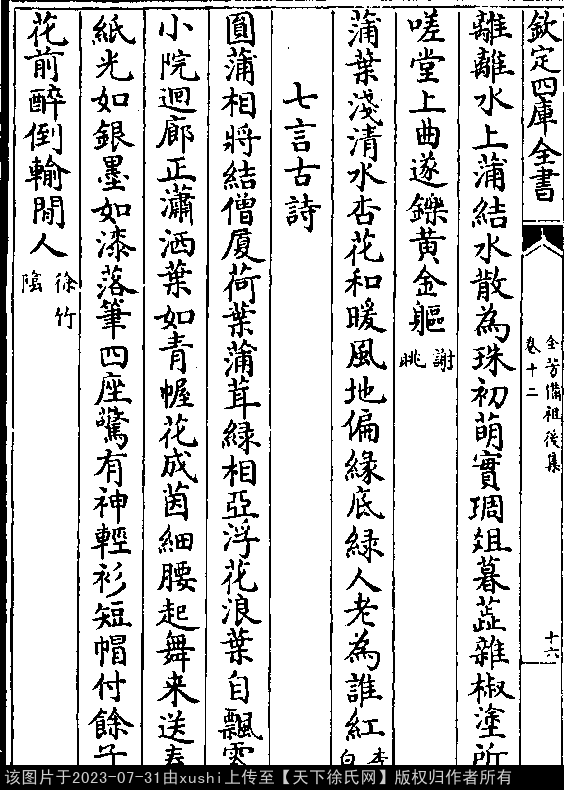 欽定四庫全書
全芳備祖後集
卷十二
十六
離離水上蒲結水散為珠初萌實琱俎暮蕋雜椒塗所
嗟堂上曲遂鑠黃金軀
謝
眺
蒲葉淺清水杏花和暖風地偏緣底綠人老為誰紅
李
白
七言古詩
圓蒲相將結僧厦荷葉蒲茸緑相亞浮花浪葉自飄零
小院迴廊正瀟洒葉如青幄花成茵細腰起舞来送春
紙光如銀墨如漆落筆四座驚有神輕衫短帽付餘子
花前醉倒輸閒人
徐竹
隂
该图片于2023-07-31由xushi上传至【天下徐氏网】版权归作者所有